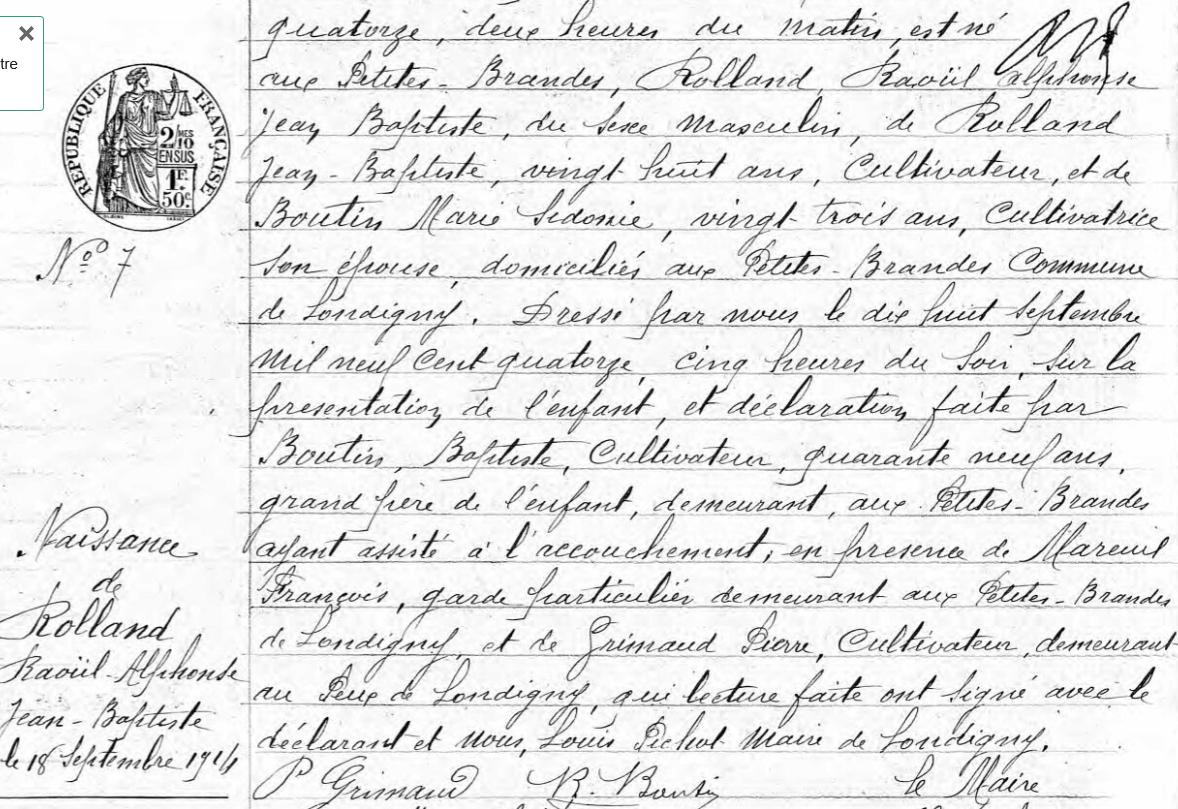 tre
RÉPUBLIQUE FRANÇAISE
2/10 MES
EN SUS
1F.
50c.
N° 7
Naissance
de
Rolland
Raoül-Alphonse
Jean-Baptiste
le 18 Septembre 1914
quatorze, deux heures du matin, est né
aux Petites-Brandes, Rolland, Raoül Alphonse
Jean Baptiste, du sexe masculin, de Rolland
Jean-Baptiste, vingt huit ans, Cultivateur, et de
Boutin Marie Sidonie, vingt trois ans, Cultivatrice
son épouse, domiciliés aux Petites-Brandes Commune
de Londigny. Dressé par nous le dix huit septembre
mil neuf cent quatorze, cinq heures du soir, sur la
presentation de l'enfant, et déclaration faite par
Boutin, Baptiste, Cultivateur, quarante neuf ans,
grand père de l'enfant, demeurant, aux Petites-Brandes
ayant assisté à l'accouchement, en presence de Mareuil
François, garde particulier demeurant aux Petites-Brandes
de Londigny, et de Grimaud Pierre, Cultivateur, demeurant
au Peux de Londigny, qui lecture faite ont signé avec le
déclarant et nous, Louis Pichot Maire de Londigny.
P Grimaud B. Boutin le Maire